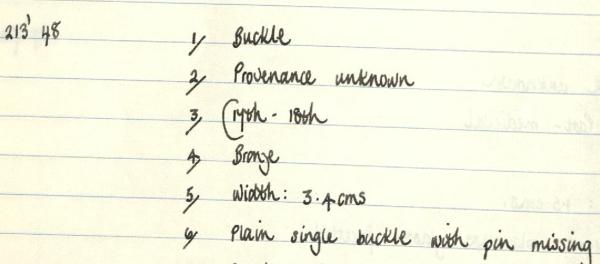 213' 48 1/ Buckle
2/ Provenance unknown
3/ (17th - 18th
4/ Bronze
5/ Width: 3.4 cms
6/ Plain single buckle with pin missing